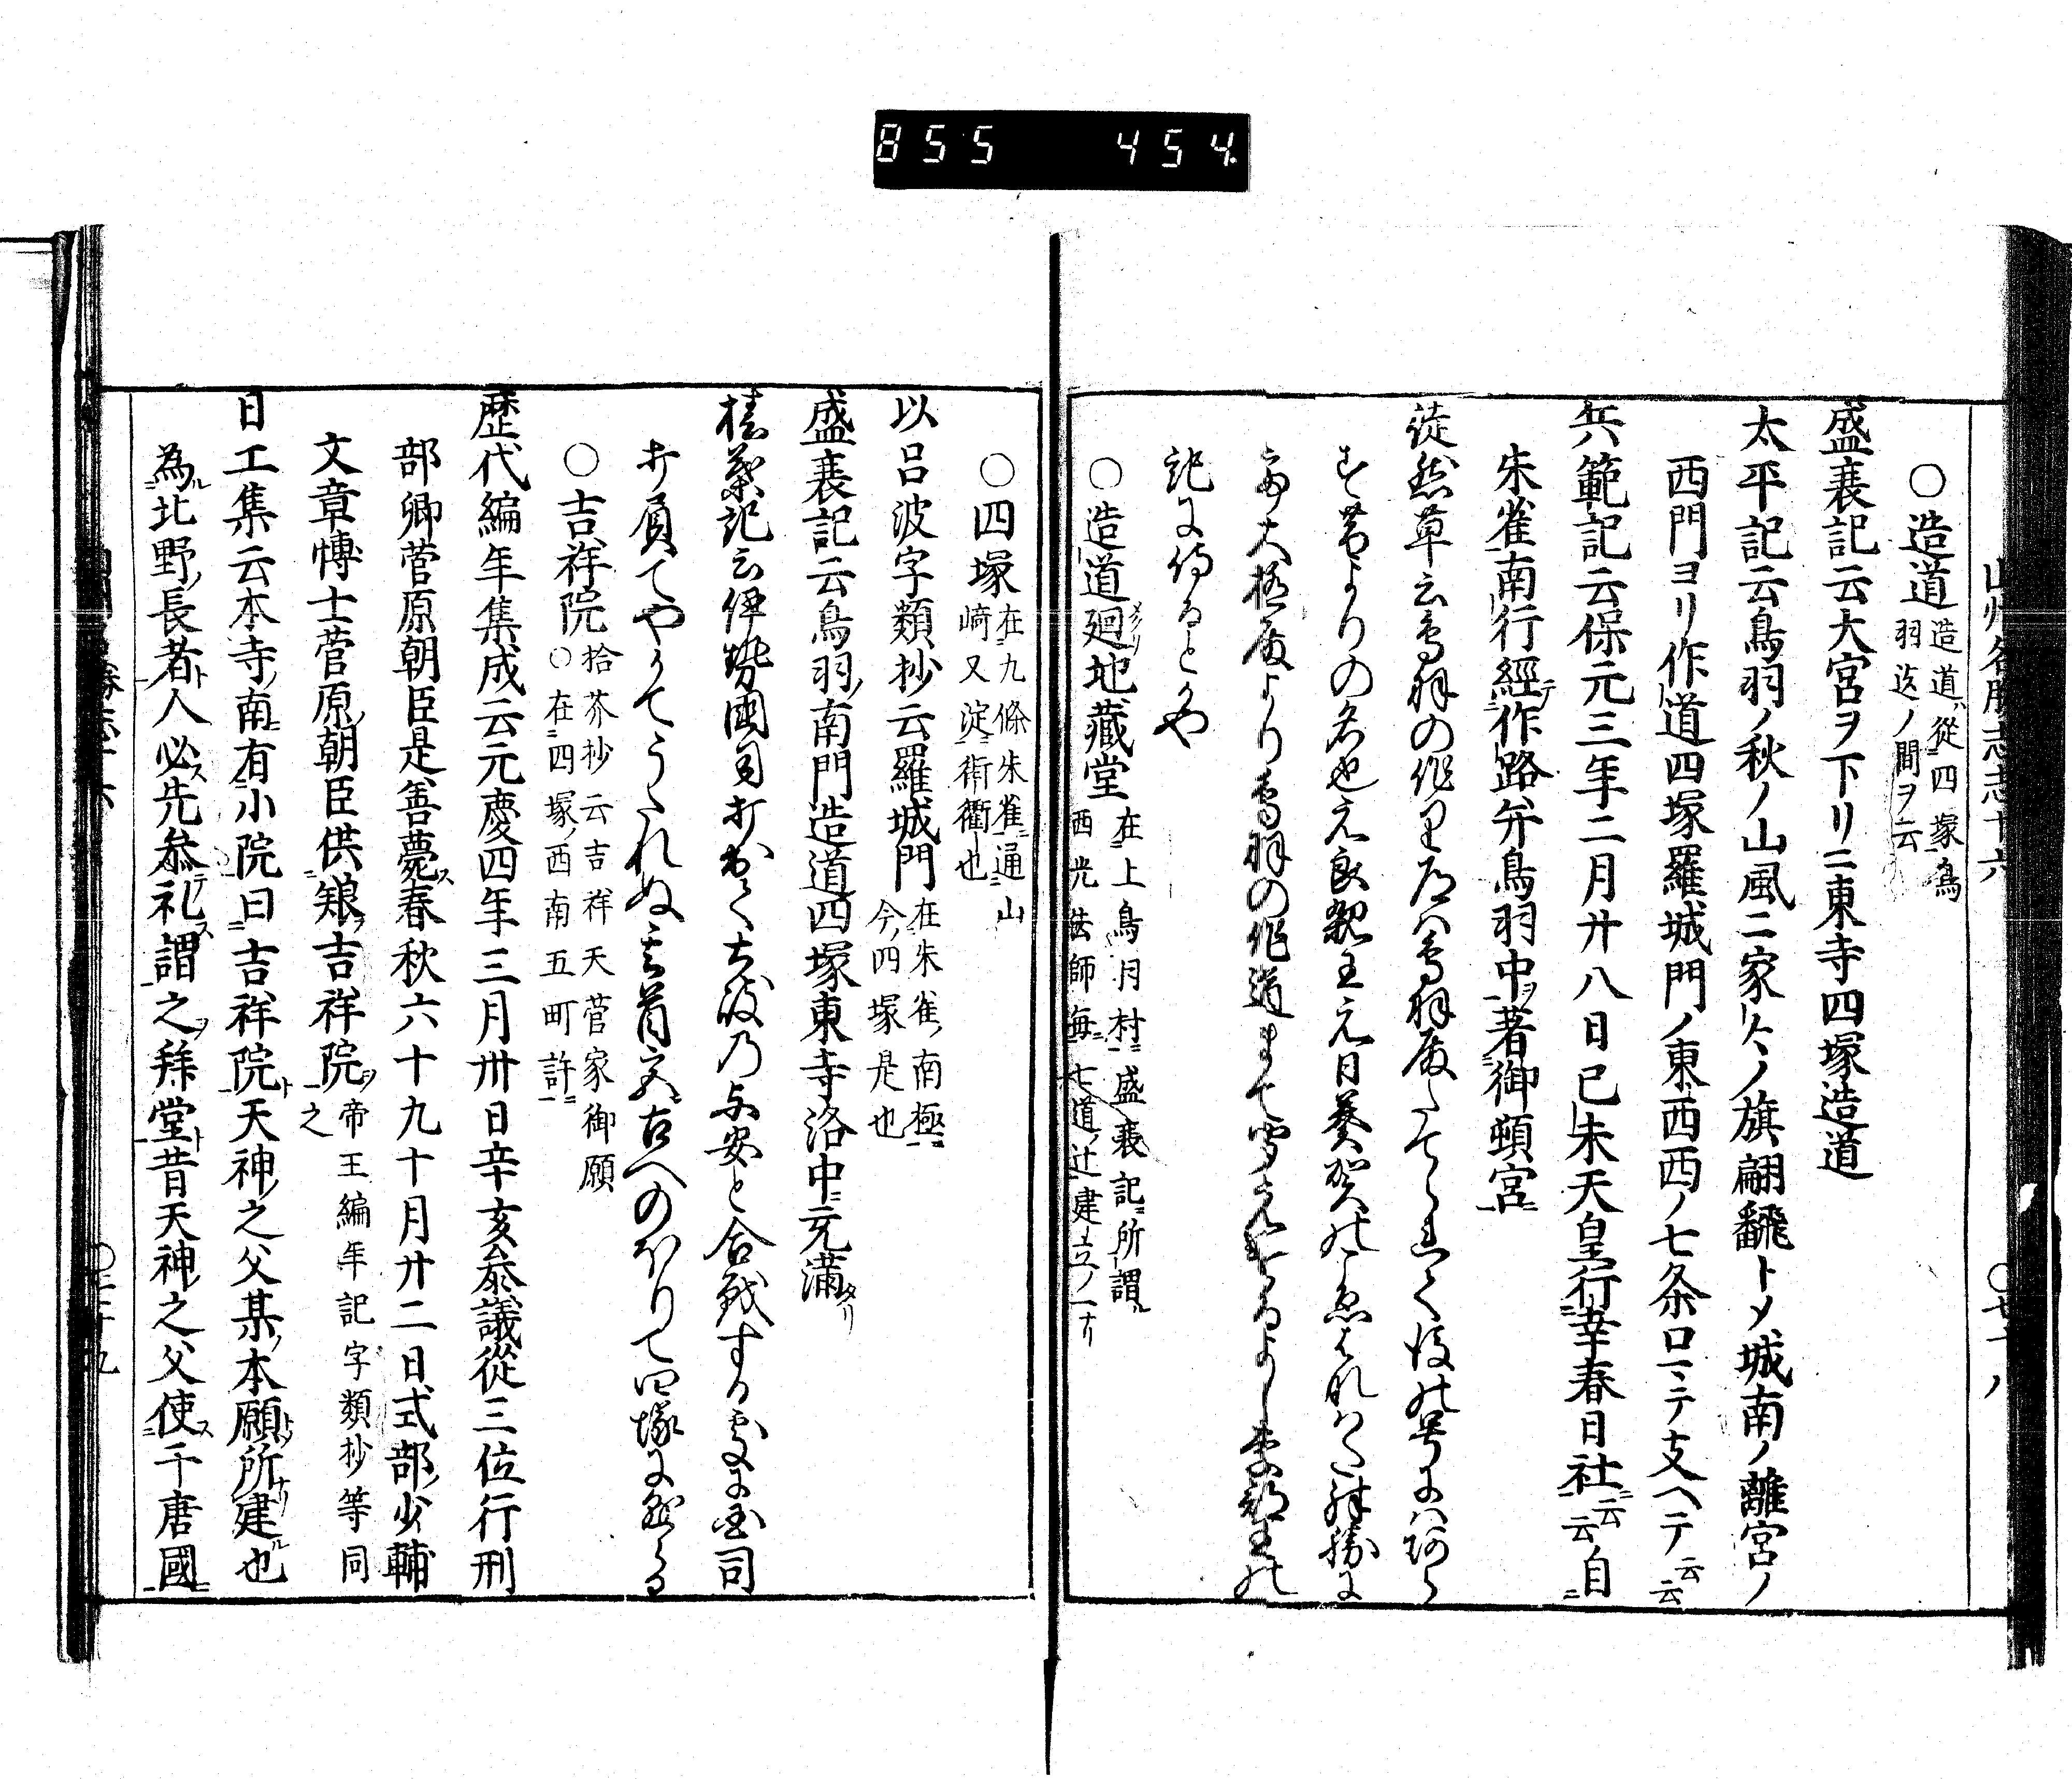 855 454
山州名勝志十六
○造道 造道ハ從四塚鳥
羽迄ノ間ヲ云
盛衰記云大宮ヲ下リニ東寺四塚造道
太平記云鳥羽ノ秋ノ山風ニ家々ノ旗翩飜トメ城南ノ離宮ノ
西門ヨリ作道四塚羅城門ノ東西西ノ七条口マテ支ヘテ云云
兵範記云保元三年二月廿八日己未天皇行幸春日社云云自
朱雀南行經作路并鳥羽中著御頓宮
徒然草云鳥羽の作り道ハ鳥羽殿たてられて後の号にハあら
す昔よりの名也元良親王元日奏賀のこゑはなハた殊勝に
して大極殿より鳥羽の作道まて聞えけるよし李部王の
記に侍るとかや
○造道廻地藏堂 在上鳥月村盛衰記所謂
西光法師毎七道ノ辻建立ノ一ナリ
○四塚 在九條朱雀通山
﨑又淀街衢也
以呂波字類抄云羅城門 在朱雀ノ南極
今ノ四塚是也
盛衰記云鳥羽ノ南門造道四塚東寺洛中充満
○吉祥院 拾芥抄云吉祥天菅家御願
○在四塚ノ西南五町許
歴代編年集成云元慶四年三月卅日辛亥参議從三位行刑
部卿菅原朝臣是善薨春秋六十九十月廿二日式部ノ少輔
文章博士菅原ノ朝臣供㹡吉祥院 帝王編年記字類抄等同
之
日工集云本寺ノ南有小院曰吉祥院天神ノ之父某ノ本願所建也
為北野ノ長者人必先参礼謂之拜堂昔天神之父使于唐國